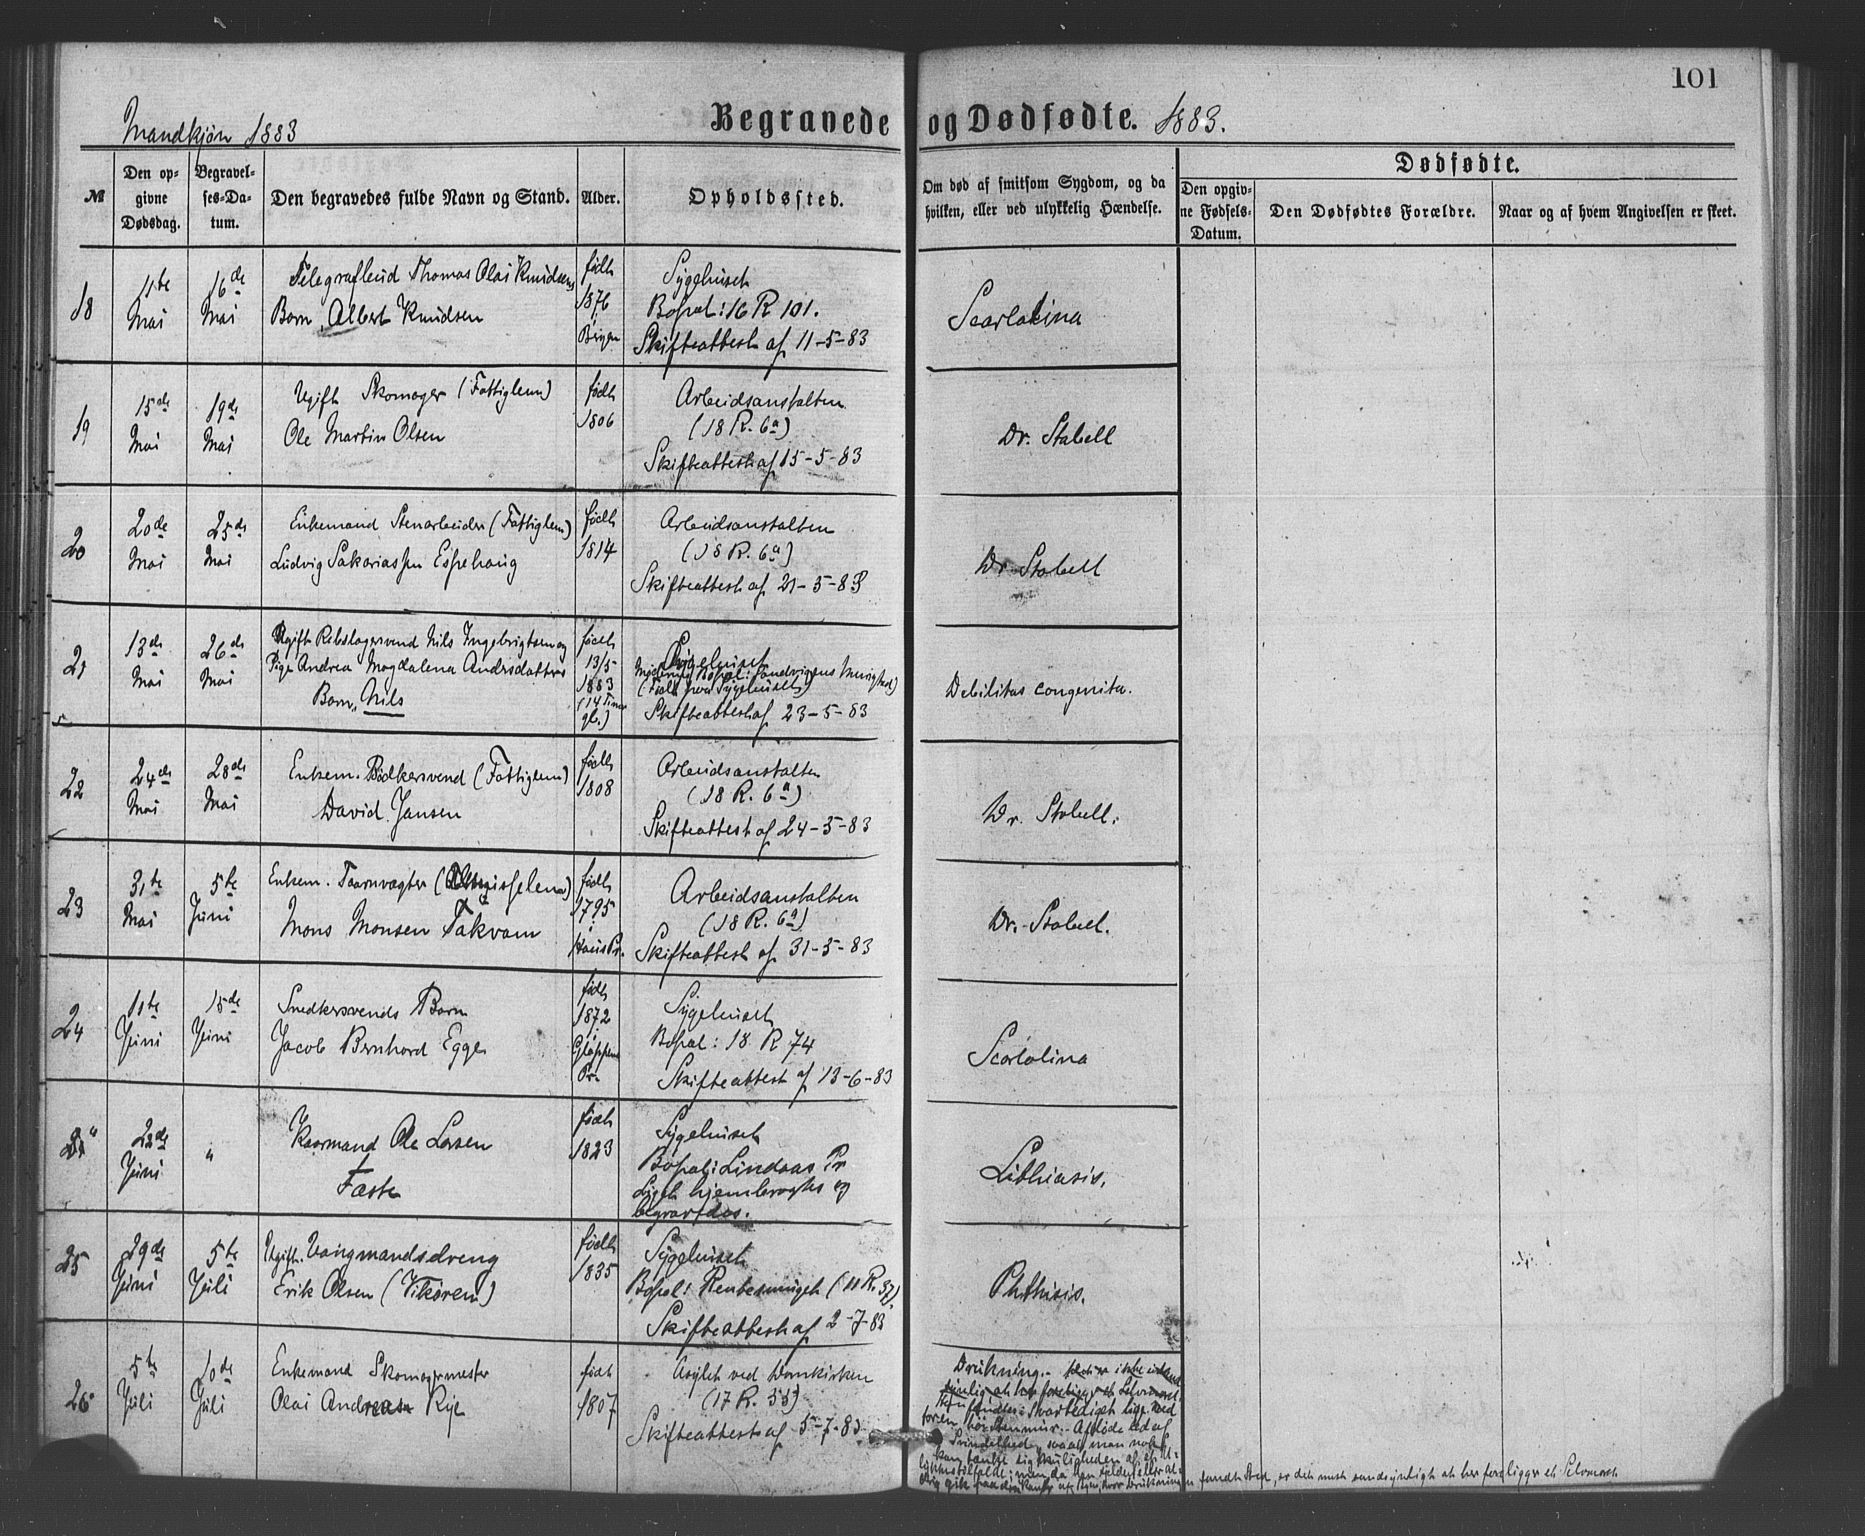 101
Mandkjøn 1883
Begravede og Dødfødte. 1883.
№
Den op-
givne
Dødsdag.
Begravel-
ses-Da-
tum.
Den begravedes fulde Navn og Stand.
Alder.
Opholdssted.
Om død af smitsom Sygdom, og da
hvilken, eller ved ulykkelig Hændelse.
Dødfødte.
Den opgiv-
ne Fødsels-
Datum.
Den Dødfødtes Forældre.
Naar og af hvem Angivelsen er skeet.
18
11te
Mai
16de
Mai
Telegrafbud Thomas Olai Knudsens
Barn, Albert Knudsen
født
1876
i
Bergen
Sygehuset
Bopæl: 16 R 101.
Skifteattest af 11-5-83
Scarlatina
19
15de
Mai
19de
Mai
Ugift Skomager (Fattiglem)
Ole Martin Olsen
født
1806
Arbeidsanstalten
(18 R. 6a)
Skifteattest af 15-5-83
Dr. Stabell
20
20de
Mai
25de
Mai
Enkemand Stenarbeider (Fattiglem)
Ludvig Sakariassen Espehaug
født
1814
Arbeidsanstalten
(18 R. 6a)
Skifteattest af 21-5-83
Dr Stabell
21
13de
Mai
26de
Mai
Ugift Rebslagersvend Nils Ingebrigtsen og
Pige Andrea Magdalena Andersdatters
Barn, Nils
født
13/5
1883
(14 Timer
gl.)
Sygehuset
Moderens Bopæl: Sandvigens
(Født paa Sygehuset)
Skifteattest af 23-5-83
Debilitas congenita.
22
24de
Mai
28de
Mai
Enkem. Bødkersvend (Fattiglem)
David Jansen
født
1808
Arbeidsanstalten
(18 R. 6a)
Skifteattest af 24-5-83
Dr. Stabell.
23
31te
Mai
5te
Juni
Enkem. Taarnvægter
Mons Monsen Takvam
født
1795
i
Haus Pr.
Arbeidsanstalten
(18 R. 6a)
Skifteattest af 31-5-83
Dr. Stabell.
24
11te
Juni
15de
Juni
Snedkersvends Barn
Jacob Bernhard Egge
født
1872
i
Gloppens
Pr.
Sygehuset
Bopæl: 18 R 74
Skifteattest af 13-6-83
Scarlatina
22de
Juni
"
Kaarmand Ole Larsen
Faste
født
1823
Sygehuset
Bopæl: Lindaas Pr
Liget hjembragtes og
begravedes.
Lithiasis.
25
29de
Juni
5te
Juli
Ugift. Vaagmandsdreng
Erik Olsen (Vikøren)
født
1835
Sygehuset
Bopæl: (11 R. 37).
Skifteattest af 2-7-83
Phthisis.
26
5te
Juli
10de
Juli
Enkemand Skomagermester
Olai Andreas Rye
født
1807
Asylet ved Domkirken
(17 R. 55)
Skifteattest af 5-7-83
Drukning.
fundet Sted, er det mest sandsynligt at her foreligger et Selvmord